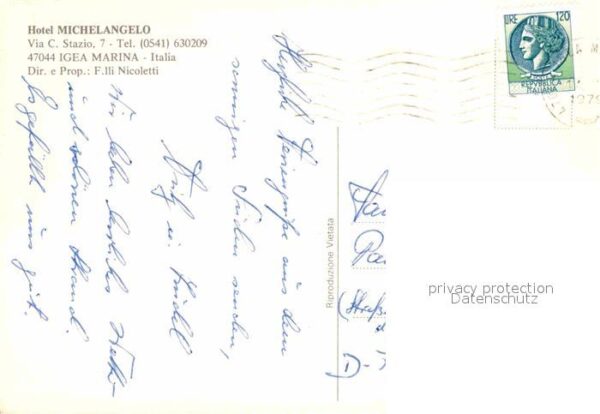 Hotel MICHELANGELO
Via C. Stazio, 7 - Tel. (0541) 630209
47044 IGEA MARINA - Italia
Dir. e Prop.: F.lli Nicoletti
LIRE 120
REPVBBLICA
ITALIANA
1979
Herzliche Feriengrüße aus dem
sonnigen Süden senden,
Fritz u. Gudel
Wir haben herrliches Wetter
und schönen Strand.
Es gefällt uns gut.
Riproduzione Vietata
(Straß
D-
privacy protection
Datenschutz